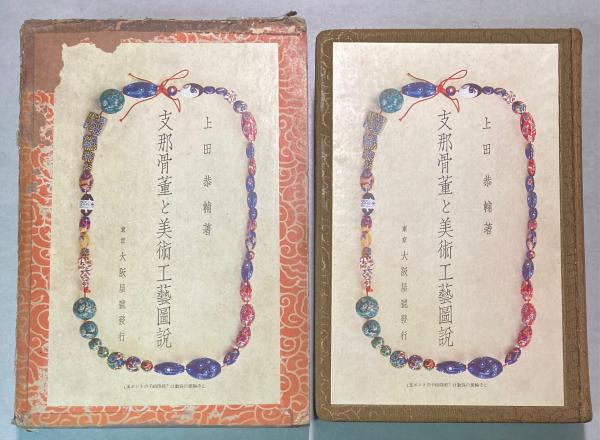 上田恭輔著
支那骨董と美術工藝圖說
東京 大阪屋號發行
上田恭輔著
支那骨董と美術工藝圖說
東京 大阪屋號發行